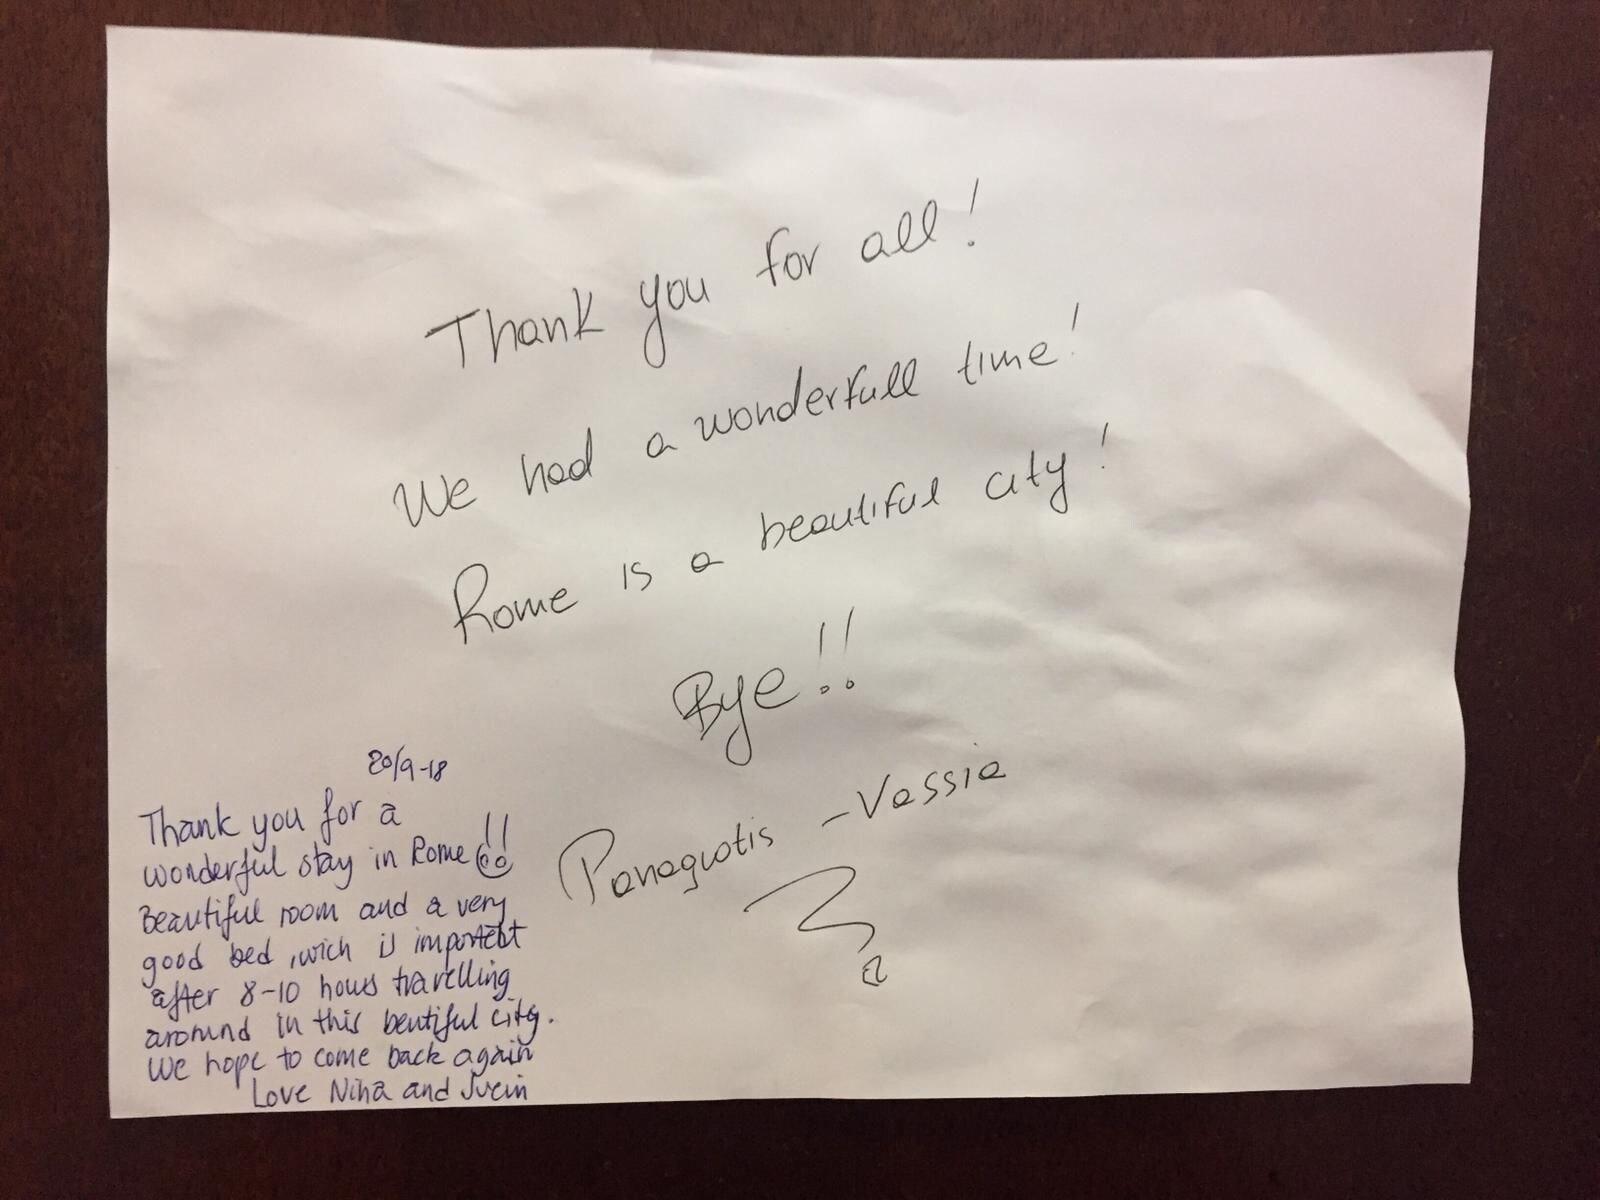 Thank you for all!
We had a wonderfull time!
Rome is a beautiful city!
Bye!!
Panagiotis - Vassia
20/9-18
Thank you for a
wonderful stay in Rome!!
Beautiful room and a very
good bed, wich is important
after 8-10 hours travelling
around in this beutiful city.
We hope to come back again
Love Nina and Svein